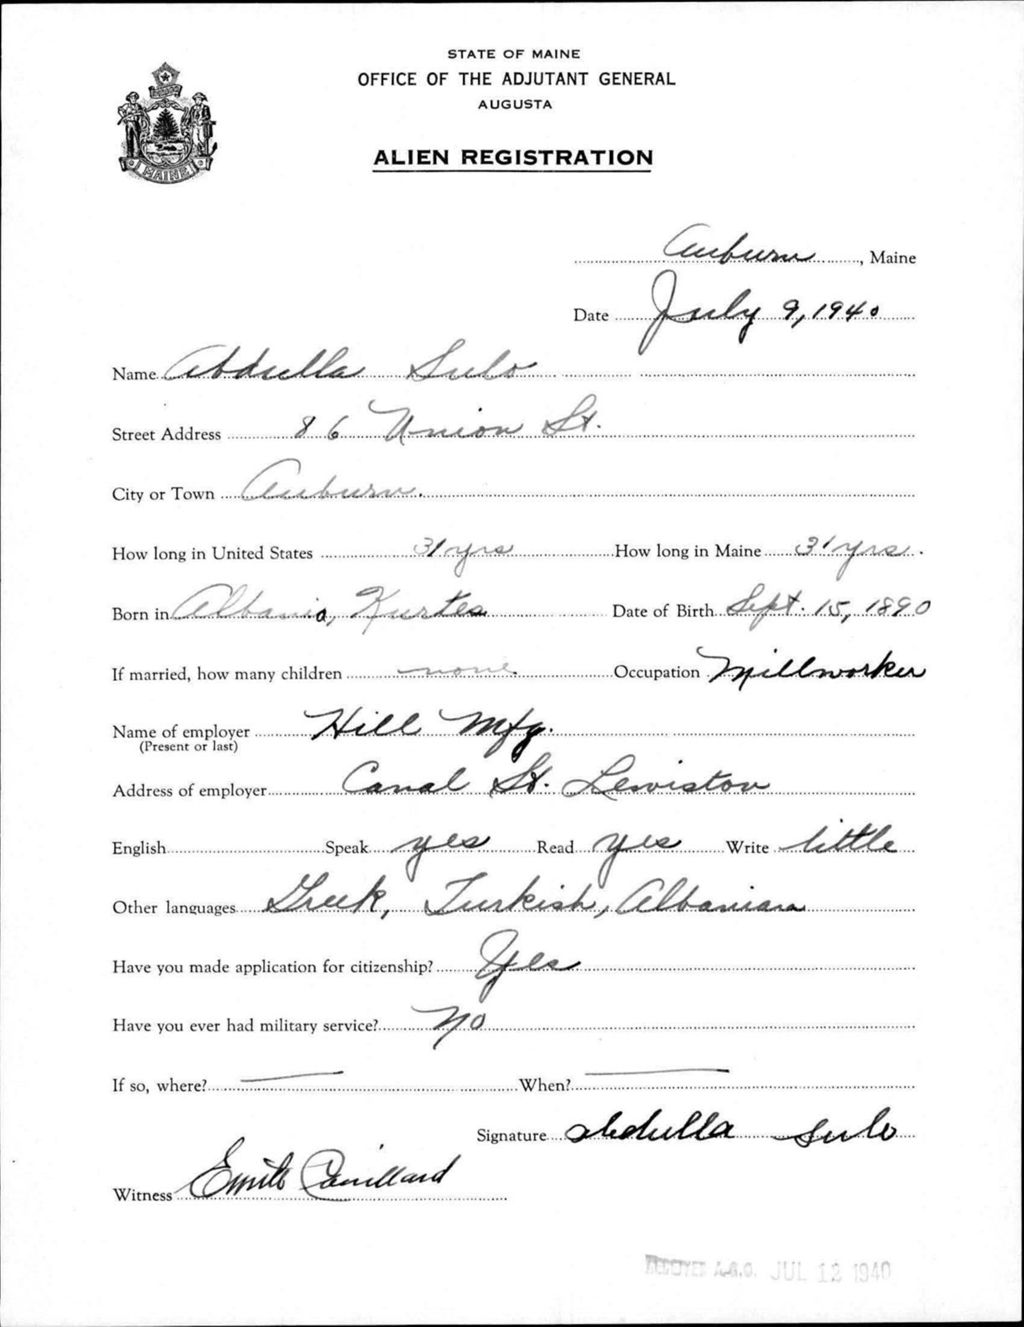 STATE OF MAINE
OFFICE OF THE ADJUTANT GENERAL
AUGUSTA
ALIEN REGISTRATION
MAINE
Auburn, Maine
Date July 9, 1940
Name Abdulla Sulo
Street Address 86 Union St.
City or Town Auburn.
How long in United States 31 yrs How long in Maine 31 yrs.
Born in Albania, Kurtes Date of Birth Sept. 15, 1890
If married, how many children none. Occupation Millworker
Name of employer Hill Mfg.
(Present or last)
Address of employer Canal St. Lewiston
English Speak yes Read yes Write little
Other languages Greek, Turkish, Albanian
Have you made application for citizenship? Yes
Have you ever had military service? No
If so, where? — When? —
Signature abdulla sulo
Witness Emile
A.G.O. JUL 12 1940